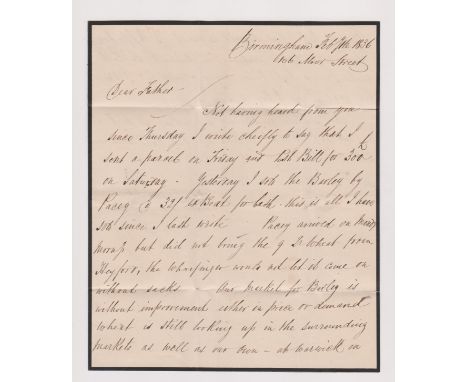 Birmingham Feb 9th 1836
Moor Street
Dear Father
Not having heard from you
since Thursday I write chiefly to say that I
sent a parcel on Friday and Bill for 200£
on Saturday - Yesterday I sold the Barley by
Pacey @ 39/ is Best for both - this is all I have
sold since I last wrote Pacey arrived on
but did not bring the q Wheat from
Heyford, the Wharfinger would not let it come on
without sacks - Our Market for Barley is
without improvement either in price or demand
Wheat is still looking up in the surrounding
markets as well as our own - at Warwick on